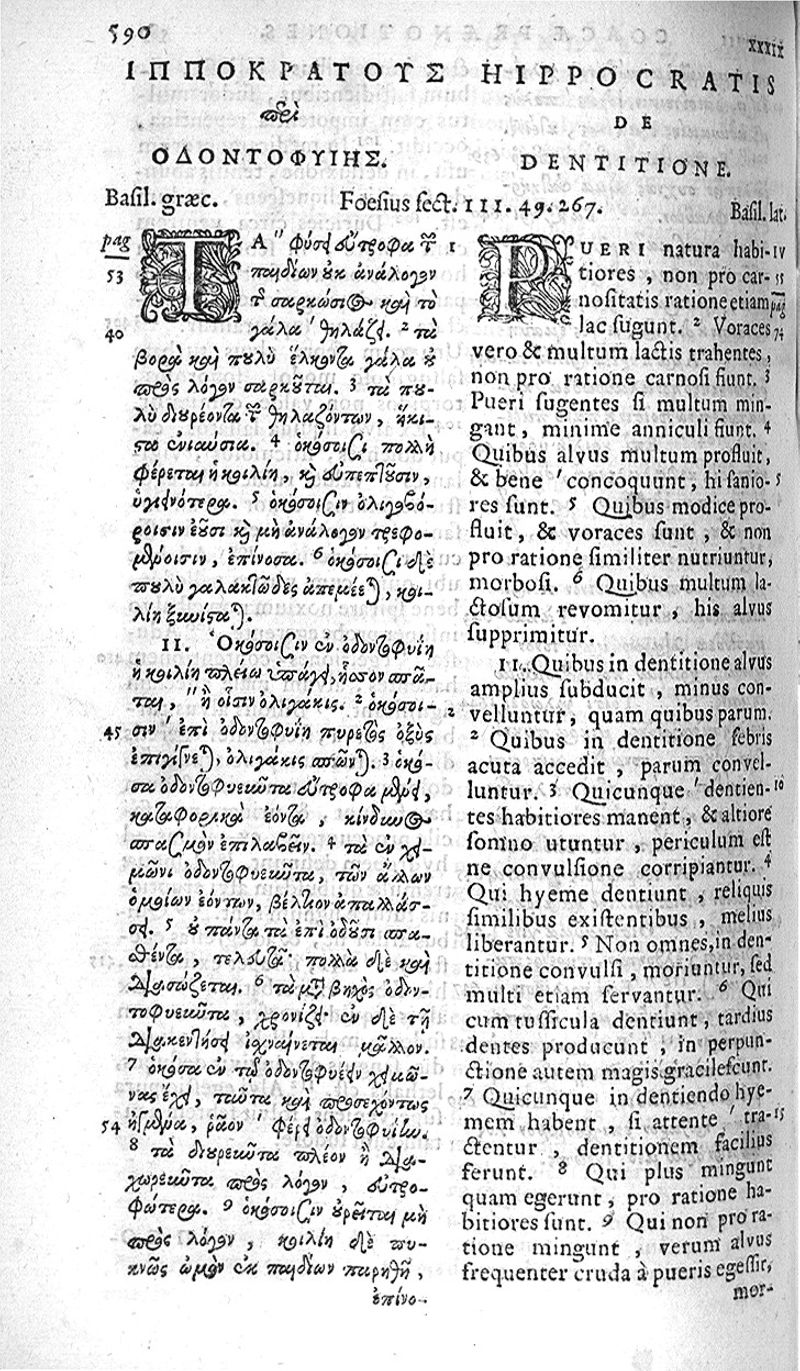 590
XXXIX
ΙΠΠΟΚΡΑΤΟΥΣ
περὶ
ΟΔΟΝΤΟΦΥΙΗΣ.
HIPPOCRATIS
DE
DENTITIONE.
Basil. græc.
Foesius sect. III. 49. 267.
Basil. lat.
pag
53
40
45
54
ΤΑ φύσει εὔτροφα τῶν
παιδίων οὐκ ἀνάλογον
τῆς σαρκώσιος καὶ τὸ
γάλα θηλάζει. 2 τὰ
βορὰ καὶ πουλὺ ἕλκοντα γάλα οὐ
πρὸς λόγον σαρκοῦται. 3 τὰ που-
λὺ διουρέοντα τῶν θηλαζόντων, ἥκι-
στα ἐνιαύσια. 4 ὁκόσοισι πολλὴ
φέρεται ἡ κοιλίη, καὶ εὐπεπτοῦσιν,
ὑγιεινότερα. 5 ὁκόσοισιν ὀλίγη βό-
ροισιν ἐοῦσι καὶ μὴ ἀνάλογον τρεφο-
μένοισιν, ἐπίνοσα. 6 ὁκόσοισι δὲ
πουλὺ γαλακτῶδες ἀπεμέεται, κοι-
λίη ξυνίσταται.
11. Ὁκόσοισιν ἐν ὀδοντοφυΐῃ
ἡ κοιλίη πλείω ὑπάγει, ἧσσον σπᾶ-
ται, ἢ οἷσιν ὀλιγάκις. 2 ὁκόσοι-
σιν ἐπὶ ὀδοντοφυΐῃ πυρετὸς ὀξὺς
ἐπιγίνεται, ὀλιγάκις σπῶνται. 3 ὁκό-
σα ὀδοντοφυεῦντα εὔτροφα μένει,
καταφορικὰ ἐόντα, κίνδυνος
σπασμὸν ἐπιλαβεῖν. 4 τὰ ἐν χει-
μῶνι ὀδοντοφυεῦντα, τῶν ἄλλων
ὁμοίων ἐόντων, βέλτιον ἀπαλλάσ-
σει. 5 οὐ πάντα τὰ ἐπὶ ὀδοῦσι σπα-
σθέντα, τελευτᾷ· πολλὰ δὲ καὶ
διασώζεται. 6 τὰ μετὰ βηχὸς ὀδον-
τοφυεῦντα, χρονίζει· ἐν δὲ τῇ
διακεντήσει ἰχναίνεται μᾶλλον.
7 ὁκόσα ἐν τῷ ὀδοντοφυεῖν χειμῶ-
νας ἔχει, ταῦτα καὶ προσεχόντως
ἠγμένα, ῥᾶον φέρει ὀδοντοφυΐην.
8 τὰ διουρεῦντα πλέον ἢ δια-
χωρεῦντα πρὸς λόγον, εὐτρο-
φώτερα. 9 ὁκόσοισιν οὐρεῖται μὴ
πρὸς λόγον, κοιλίη δὲ πυ-
κνῶς ὠμὸν ἐκ παιδίων παρηθῇ,
ἐπίνο-
PUERI natura habi-
tiores, non pro car-
nositatis ratione etiam
lac sugunt. 2 Voraces
vero & multum lactis trahentes,
non pro ratione carnosi fiunt. 3
Pueri sugentes si multum min-
gant, minime anniculi fiunt. 4
Quibus alvus multum profluit,
& bene concoquunt, hi sanio-
res sunt. 5 Quibus modice pro-
fluit, & voraces sunt, & non
pro ratione similiter nutriuntur,
morbosi. 6 Quibus multum la-
ctosum revomitur, his alvus
supprimitur.
11. Quibus in dentitione alvus
amplius subducit, minus con-
velluntur, quam quibus parum.
2 Quibus in dentitione febris
acuta accedit, parum convel-
luntur. 3 Quicunque dentien-
tes habitiores manent, & altiore
somno utuntur, periculum est
ne convulsione corripiantur. 4
Qui hyeme dentiunt, reliquis
similibus existentibus, melius
liberantur. 5 Non omnes, in den-
titione convulsi, moriuntur, sed
multi etiam servantur. 6 Qui
cum tussicula dentiunt, tardius
dentes producunt, in perpun-
ctione autem magis gracilescunt.
7 Quicunque in dentiendo hye-
mem habent, si attente tra-
ctentur, dentitionem facilius
ferunt. 8 Qui plus mingunt
quam egerunt, pro ratione ha-
bitiores sunt. 9 Qui non pro ra-
tione mingunt, verum alvus
frequenter cruda à pueris egessit,
mor-
IV
15
pag
74
5
10
15